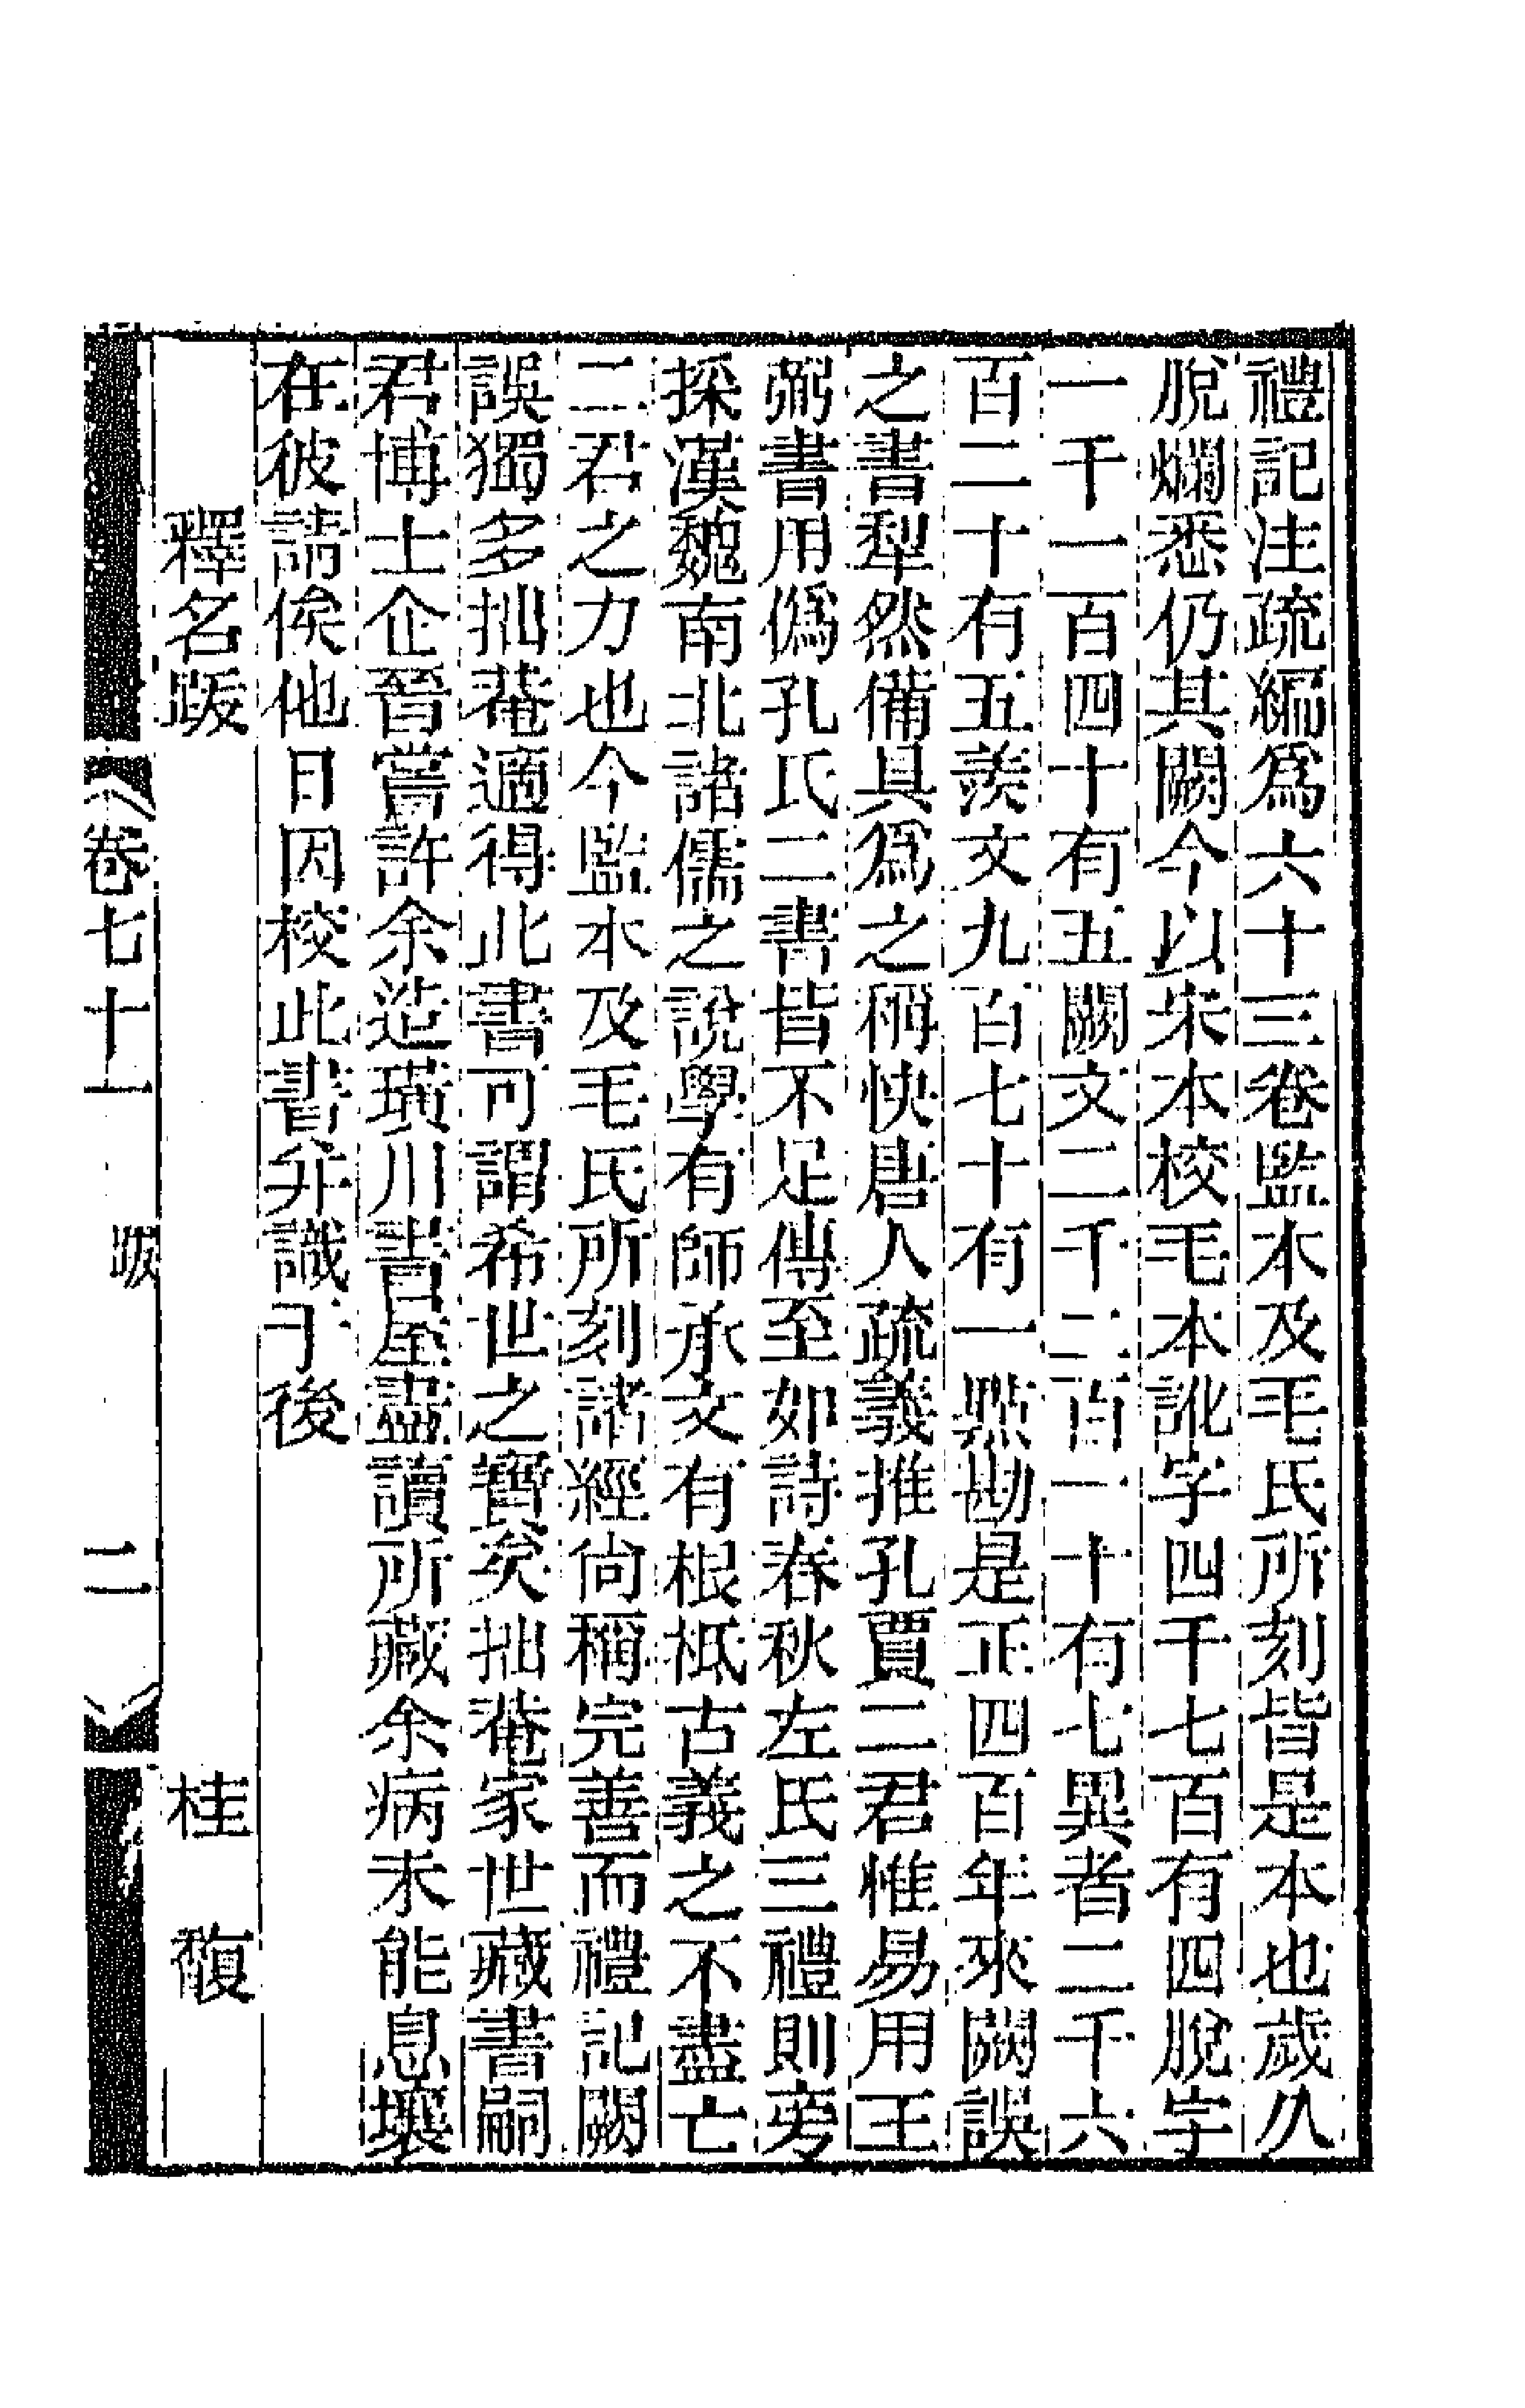 禮記注疏編爲六十三卷監本及毛氏所刻皆是本也歲久
脫爛悉仍其闕今以宋本校毛本訛字四千七百有四脫字
一千一百四十有五闕文二千二百一十有七異者二千六
百二十有五羨文九百七十有一點勘是正四百年來闕誤
之書犁然備具爲之稱快唐人疏義推孔賈二君惟易用王
弼書用僞孔氏二書皆不足傳至如詩春秋左氏三禮則旁
採漢魏南北諸儒之說學有師承文有根柢古義之不盡亡
二君之力也今監本及毛氏所刻諸經尙稱完善而禮記闕
誤獨多拙菴適得此書可謂希世之寶矣拙菴家世藏書嗣
君博士企晉嘗許余造璜川書屋盡讀所藏余病未能息壤
在彼請俟他日因校此書并識于後
釋名跋 桂 馥
卷七十一 跋 二